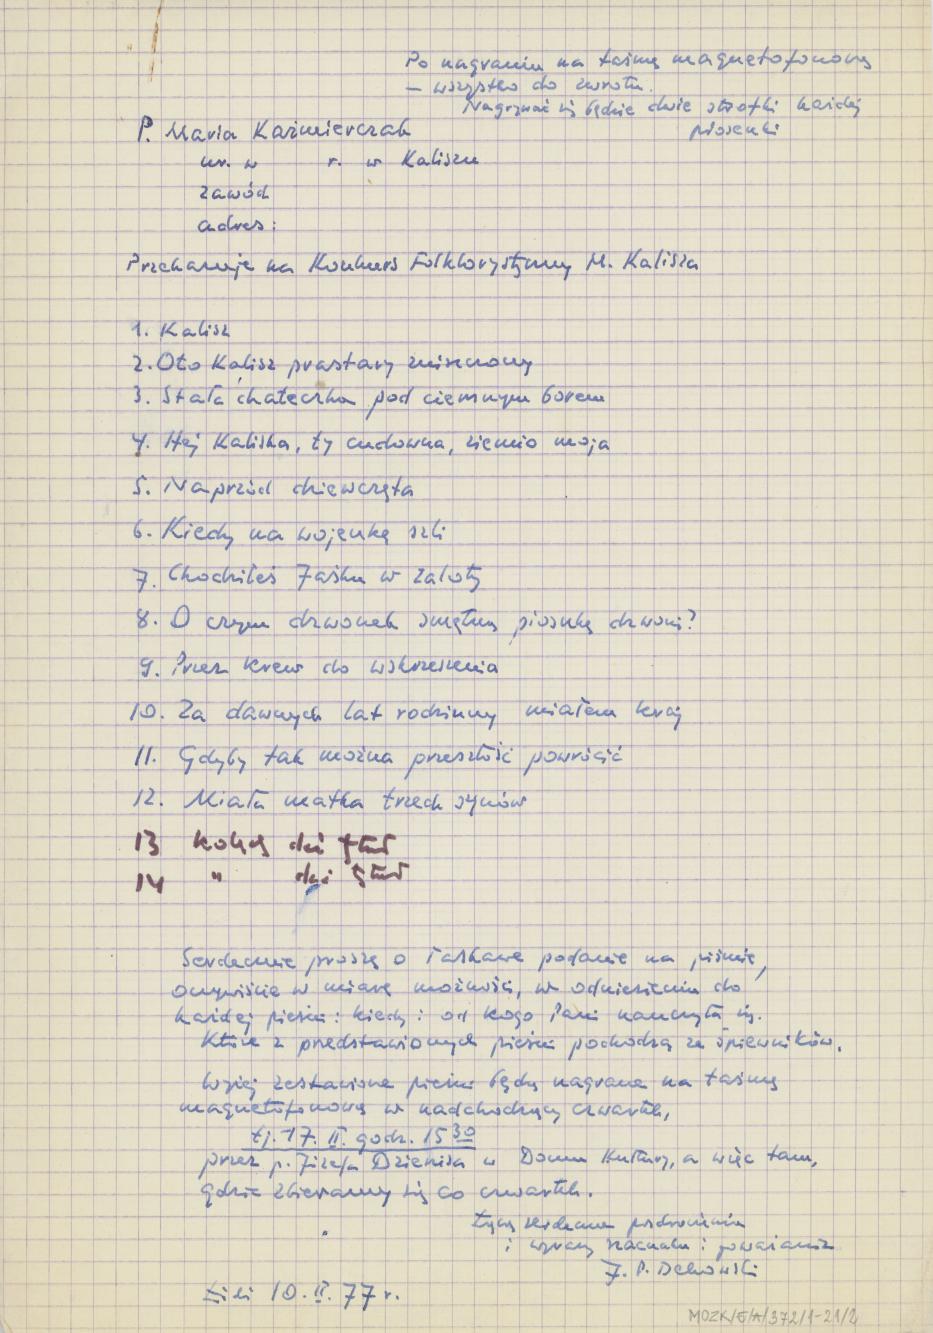 Po nagraniu na taśmę magnetofonową
– wszystko do zwrotu.
Nagrywać się będzie dwie strofki każdej
piosenki
P. Maria Kaźmierczak
ur. w r. w Kaliszu
zawód
adres:
Przekazuje na Konkurs Folklorystyczny M. Kalisza
1. Kalisz
2. Oto Kalisz prastary zniszczony
3. Stała chateczka pod ciemnym borem
4. Hej Kaliska, ty cudowna, ziemio moja
5. Naprzód dziewczęta
6. Kiedy na wojenkę szli
7. Chodziłeś Jaśku w zaloty
8. O czym dzwonek smętną piosnkę dzwoni?
9. Przez krew do wskrzeszenia
10. Za dawnych lat rodzinny miałem kraj
11. Gdyby tak można przeszłość powrócić
12. Miała matka trzech synów
13
14 "
Serdecznie proszę o łaskawe podanie na piśmie,
oczywiście w miarę możności, w odniesieniu do
każdej pieśni: kiedy i od kogo Pani nauczyła się.
Które z przedstawionych pieśni pochodzą ze śpiewników.
Wyżej zestawione pieśni będą nagrane na taśmę
magnetofonową w nadchodzący czwartek,
tj. 17. II. godz. 15 30
przez p. Józefa Dzienisa w Domu Kultury, a więc tam,
gdzie zbieramy się co czwartek.
Łączę serdeczne pozdrowienia
i wyrazy szacunku i poważania
J. P. Dekowski
Łódź 10. II. 77 r.
MOZK/E/A/372/1-21/2